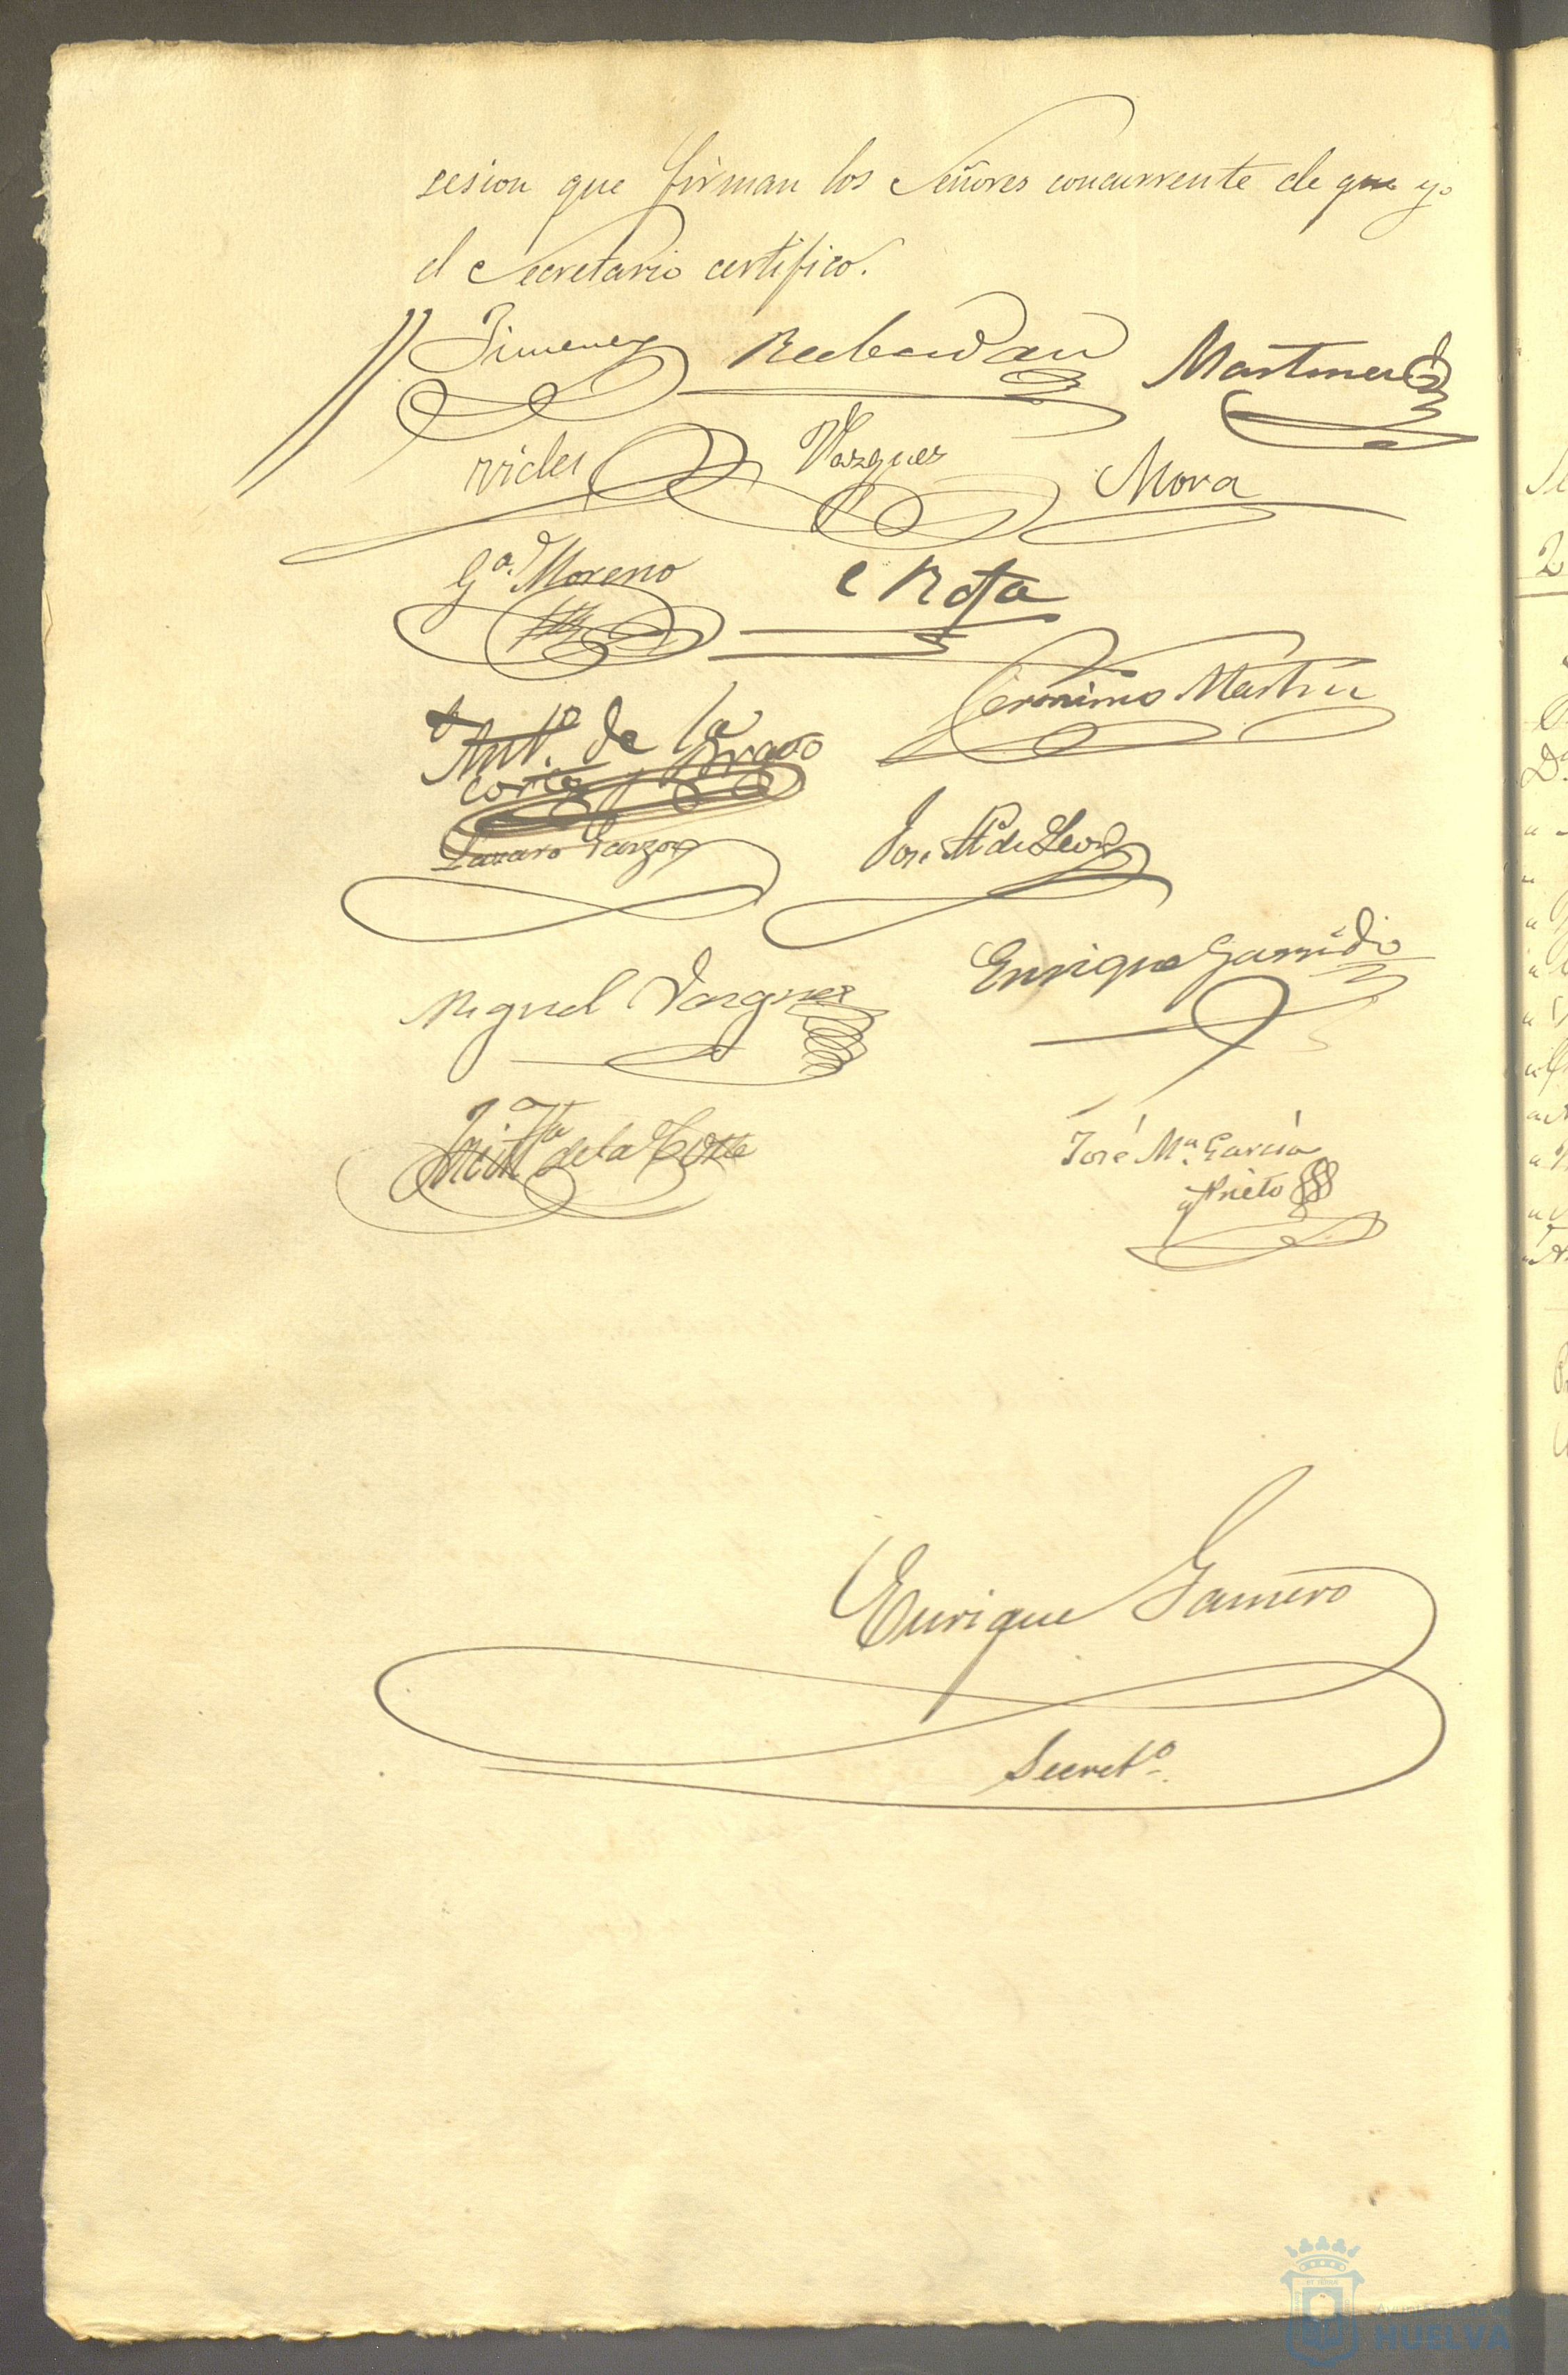 sesion que firman los Señores concurrente de que yo
el Secretario certifico.
Jimenez
Martinez
Vazquez
Mora
Gª. Moreno
Rofa
Geronimo Martin
Antº. de la
corte y Bravo
Lazaro Garzon
José Mª de Leon
Miguel Vazquez
Enrique Garrido
de la Corte
José Mª. Garcia
y Prieto
Enrique Gamero
Secretº.
HUELVA